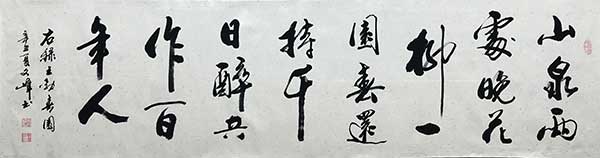 山泉兩
處晚花
柳一
園春還
持千
日醉共
作百
年人
右録王勃春園
辛丑夏文峰书